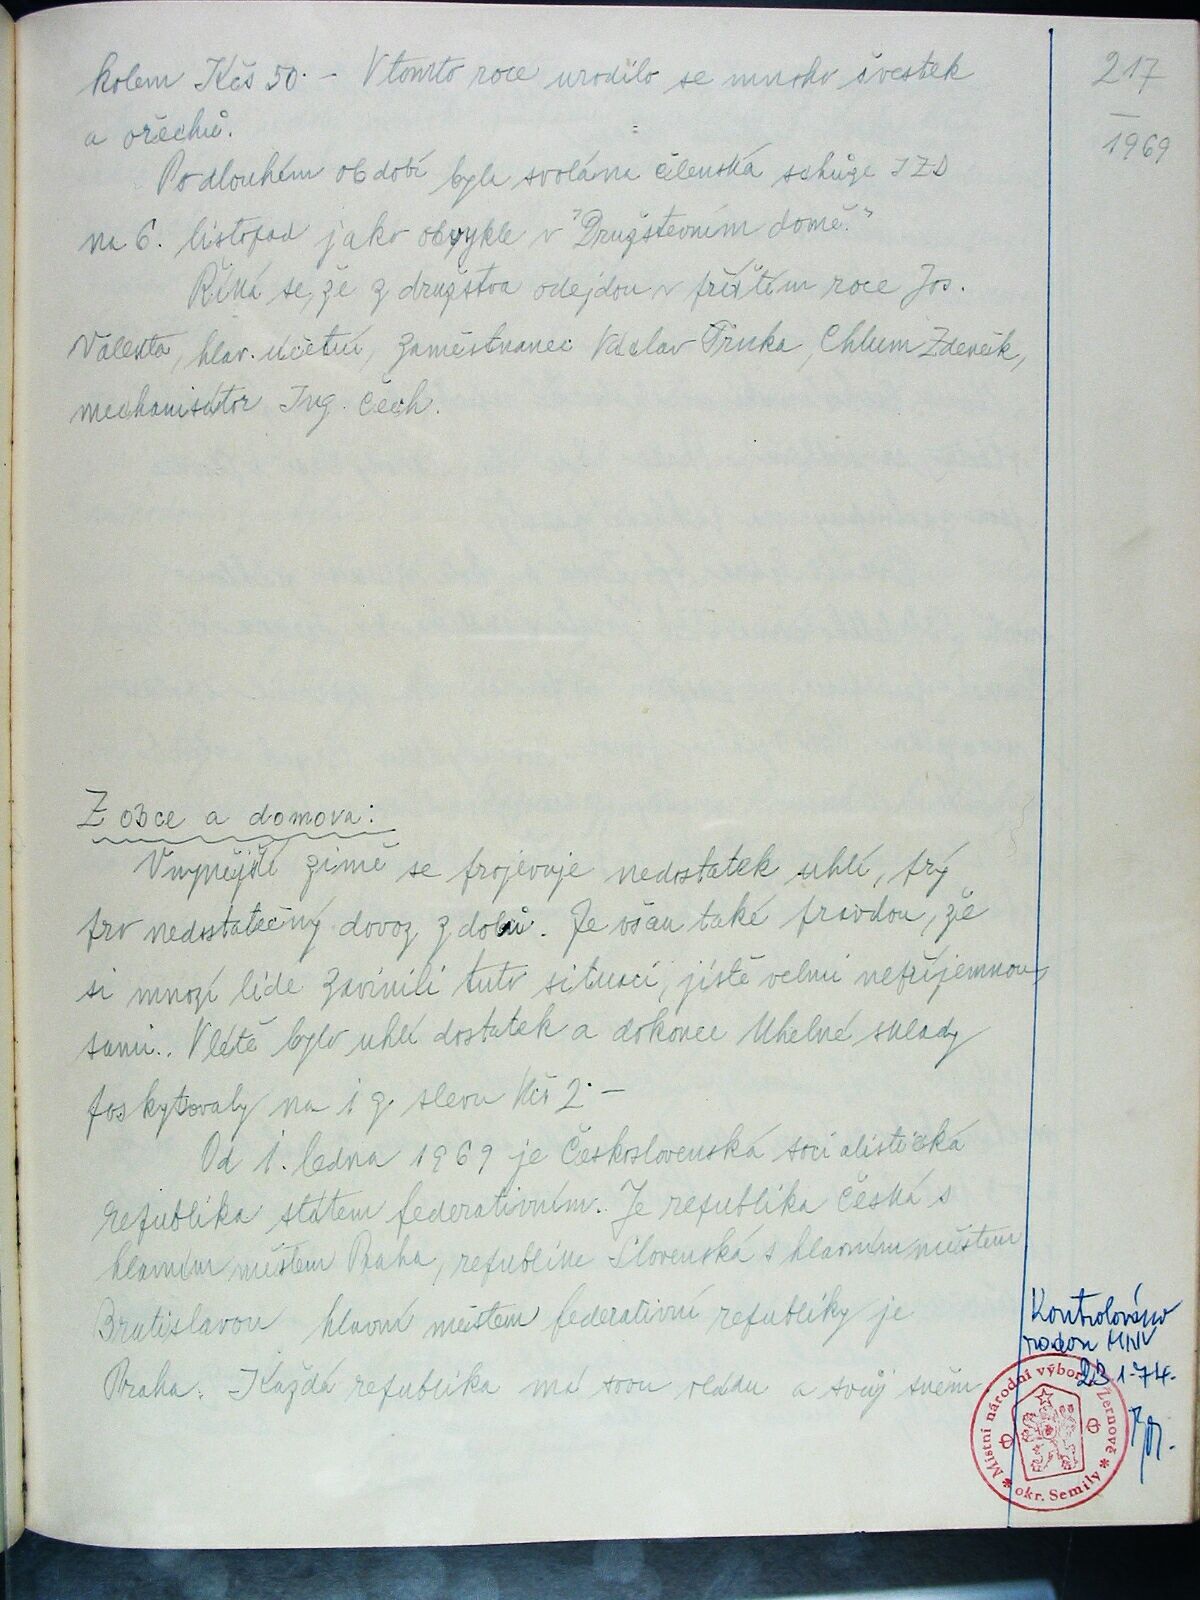 217
1969
kolem Kčs 50.- V tomto roce urodilo se mnoho švestek
a ořechů.
Po dlouhém období byla svolána členská schůze JZD
na 6. listopad jako obvykle v "Družstevním domě."
Říká se, že z družstva odejdou v příštím roce Jos.
Valenta, hlav. účetní, zaměstnanec Václav Trnka, Chlum Zdeněk,
mechanisátor Ing. Čech.
Z obce a domova:
V nynější zimě se projevuje nedostatek uhlí, prý
pro nedostatečný dovoz z dolů. Je však také pravdou, že
si mnozí lidé zavinili tuto situaci, jistě velmi nepříjemnou,
sami.. V létě bylo uhlí dostatek a dokonce Uhelné sklady
poskytovaly na 1 q. slevu Kčs 2.-
Od 1. ledna 1969 je Československá socialistická
republika státem federativním. Je republika Česká s
hlavním městem Praha, republika Slovenská s hlavním městem
Bratislavou hlavní městem federativní republiky je
Praha. Každá republika má svou vládu a svůj sněm
Kontrolováno
radou MNV
23.1.74.
Místní národní výbor Žernově
* okr. Semily *